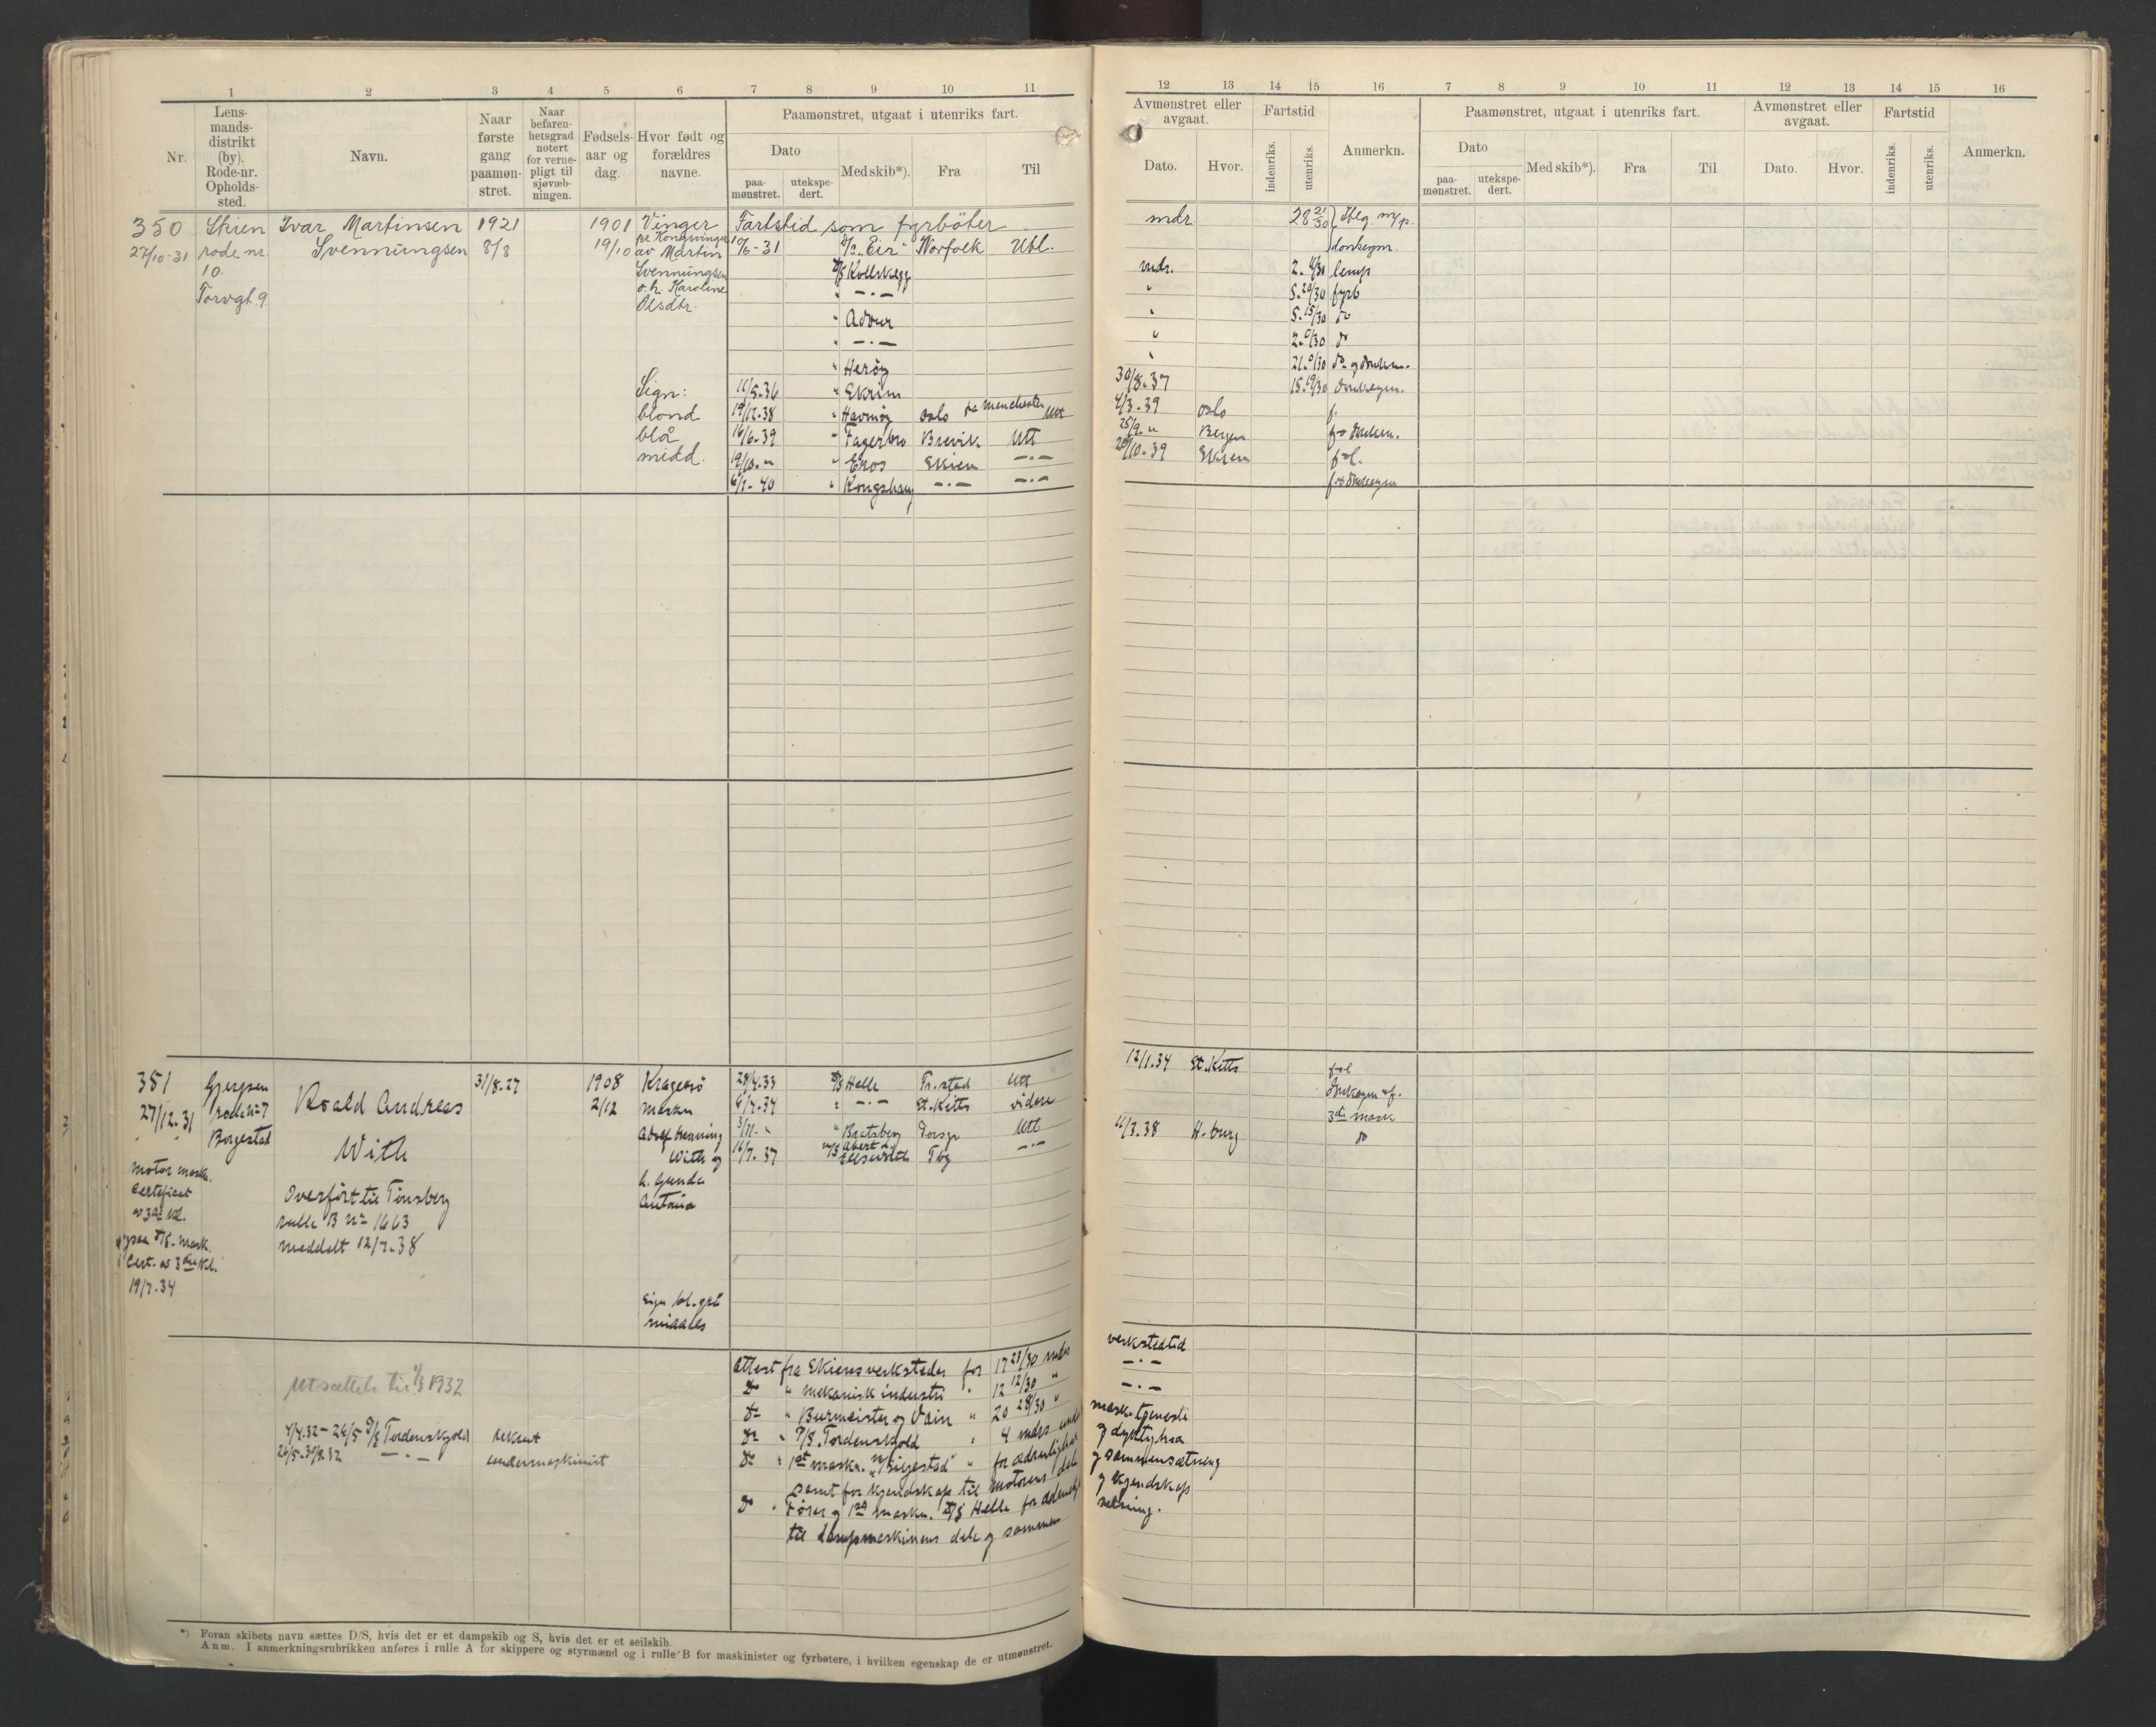 1 2 3 4 5 6 7 8 9 10 11
Nr.
Lens-
mands-
distrikt
(by).
Rode-nr.
Opholds-
sted.
Navn.
Naar
første
gang
paamøn-
stret.
Naar
befaren-
hetsgrad
notert
for verne-
pligt til
sjøvæb-
ningen.
Fødsels-
aar og
dag.
Hvor født og
forældres
navne.
Paamønstret, utgaat i utenriks fart.
Dato
paa-
mønstret.
utekspe-
dert.
Med skib*).
Fra
Til
350 Skien Ivar Martinsen 1921 1901 Vinger Fartstid som fyrbøter
27/10-31 rode nr. Svennungsen 8/8 19/10 pr. Kongsvinger 10/6-31 D/S "Eir" Norfolk Utl.
10. av Martin
Torvgt. 9 Svennungsen D/S Kollskegg
o. h. Karoline " — . —
Olsdtr.
" Advur
" — . —
" Herøy
Sign: 11/5.36 " Ekrim
blond 19/12.38 " Havmøy Oslo pa Manchester Utl
blå 16/6.39 " Fagerbro Brevik Utl
midd. 19/10.-" " Eros Skien — . —
6/1-40 " Kongshaug — . — — . —
351 Gjerpen Roald Andreas 31/8.27 1908 Kragerø 28/4.33 D/S Helle Fr.stad Utl
27/12.31 rode nr 7 With 2/12 maskn 6/4.34 " — . — St. Kitts videre
Borgestad Adolf Henning 3/11-" " Bratsberg Porsgr Utl
With og 16/7.37 M/S Abert L. Ellsworth Tbg — . —
h. Gunda
Antonia
motor mask.
Certificat
av 3die Kl.
ogsaa D/S. mask.
Cert. av 3die Kl.
19/7.34
Overført til Tønsberg
rulle B nr 1663
meddelt 12/7.38
Sign bl. grå
middels
Utsættelse til 1/3 1932
4/4.32 - 26/5 Tordenskjold rekrut
26/5-30/9.32 — . — undermaskinist
Attest fra Skiensverksteder for 17 23/30 mdr
do " mekanisk industri " 12 12/30 "
do " Burmeister og Vain " 20 28/30 "
do " P/S. Tordenskjold " 4 mdrs
do " 1st maskn. for ædruelighet
samt for kjendskap til motorens dele
do " Fører og 1st maskn. D/S Helle for
til dampmaskinens dele og sammen
*) Foran skibets navn sættes D/S, hvis det er et dampskib og S, hvis det er et seilskib.
Anm. I anmerkningsrubrikken anføres i rulle A for skippere og styrmænd og i rulle B for maskinister og fyrbøtere, i hvilken egenskap de er utmønstret.
12 13 14 15 16 7 8 9 10 11 12 13 14 15 16
Avmønstret eller
avgaat.
Fartstid
Dato. Hvor.
indenriks.
utenriks.
Anmerkn.
Paamønstret, utgaat i utenriks fart.
Dato
paa-
mønstret.
utekspe-
dert.
Med skib*).
Fra
Til
Avmønstret eller
avgaat.
Dato. Hvor.
Fartstid
indenriks.
utenriks.
Anmerkn.
mdr. 28 21/30
donkeym.
mdr. lemp
" 5.20/30 fyrb
" 5.15/30 do
" 2.0/30 do
" 21.0/30 do og donkm.
30/8.37 15.19/30 donkeym.
4/3.39 Oslo f.
25/9.-" Bergen f o donkm.
Skien
f o donkeym
12/1.34 St. Kitts
Donkeym o f.
3die mask
11/3.38 H.burg do
verkstedtid
— . —
— . —
mask. tjeneste
og dyktighet
og sammensætning
og kjendskap
setning.